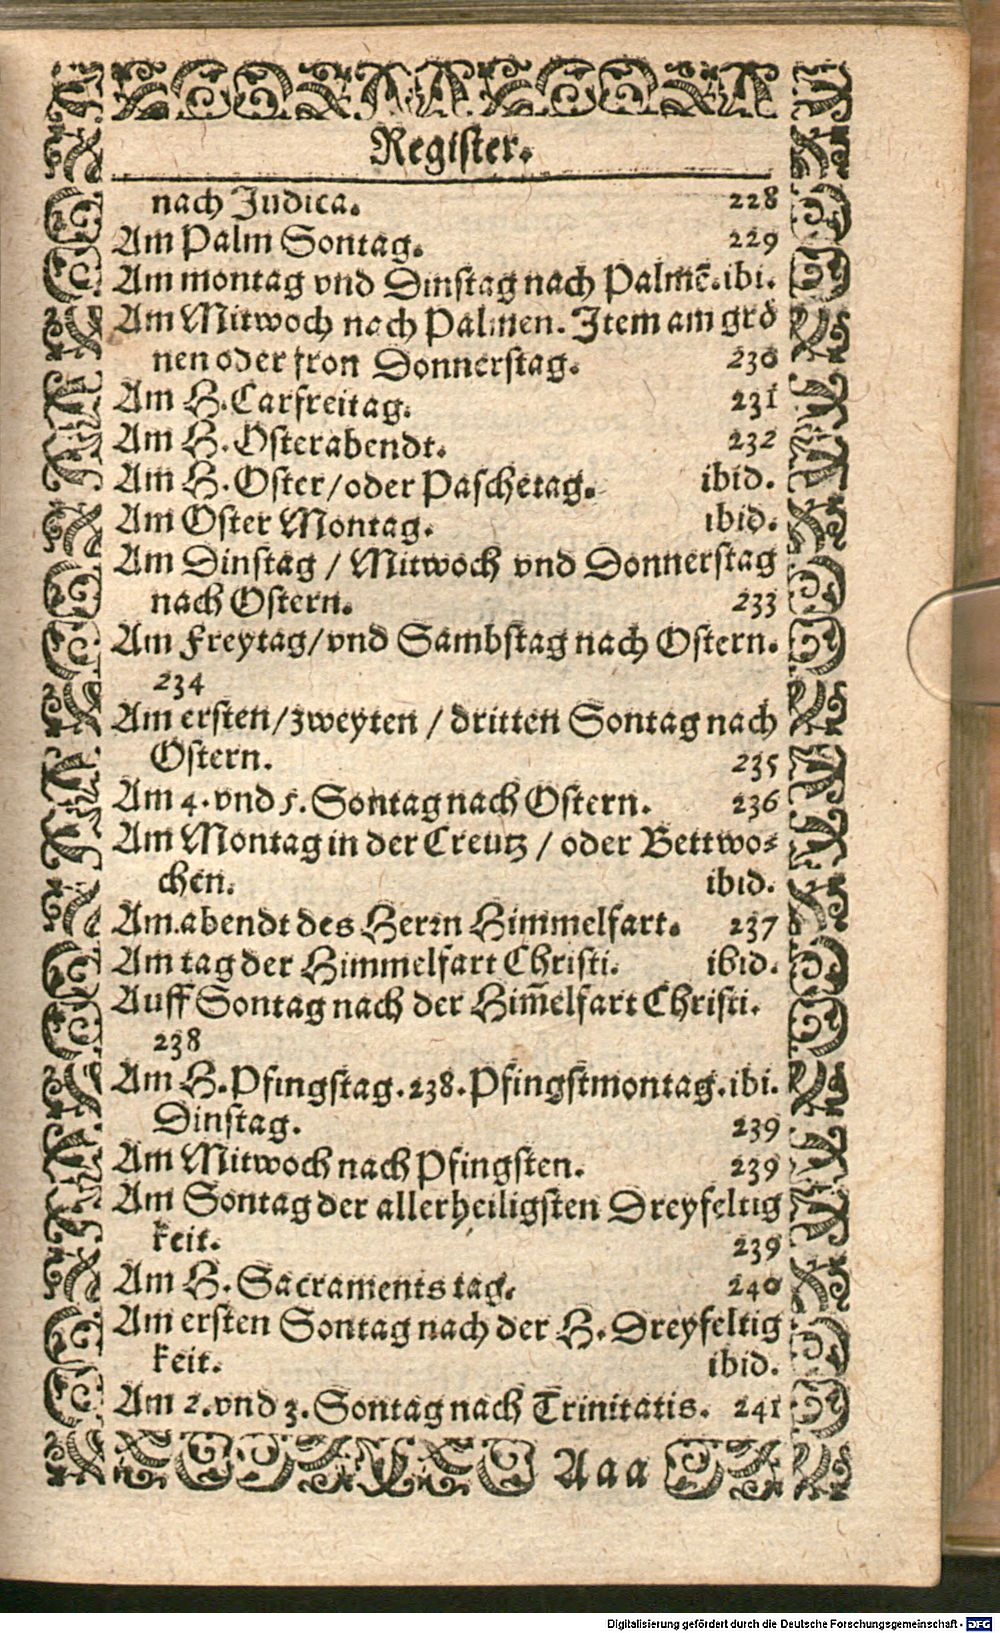 Register.
nach Judica. 228
Am Palm Sontag. 229
Am montag vnd Dinstag nach Palmē. ibi.
Am Mitwoch nach Palmen. Item am grö
nen oder fron Donnerstag. 230
Am H. Carfreitag. 231
Am H. Osterabendt. 232
Am H. Oster/oder Paschetag. ibid.
Am Oster Montag. ibid.
Am Dinstag / Mitwoch vnd Donnerstag
nach Ostern. 233
Am Freytag/vnd Sambstag nach Ostern.
234
Am ersten/zweyten / dritten Sontag nach
Ostern. 235
Am 4. vnd 5. Sontag nach Ostern. 236
Am Montag in der Creutz / oder Bettwo-
chen. ibid.
Am abendt des Herrn Himmelfart. 237
Am tag der Himmelfart Christi. ibid.
Auff Sontag nach der Him̄elfart Christi.
238
Am H. Pfingstag. 238. Pfingstmontag. ibi.
Dinstag. 239
Am Mitwoch nach Pfingsten. 239
Am Sontag der allerheiligsten Dreyfeltig
keit. 239
Am H. Sacraments tag. 240
Am ersten Sontag nach der H. Dreyfeltig
keit. ibid.
Am 2. vnd 3. Sontag nach Trinitatis. 241
Aaa
Digitalisierung gefördert durch die Deutsche Forschungsgemeinschaft - DFG